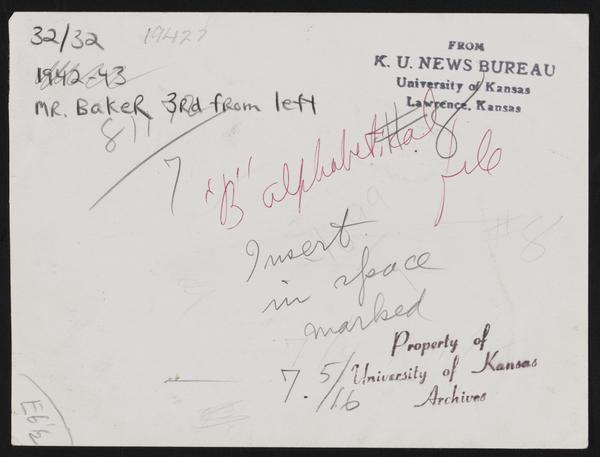 32/32
1942?
FROM
K. U. NEWS BUREAU
University of Kansas
Lawrence, Kansas
1942-43
MR. BAKER 3rd from left
811
#8
7
"B" alphabetical
file
#8
Insert
in space
marked
Property of
University of Kansas
Archives
7. 5/16